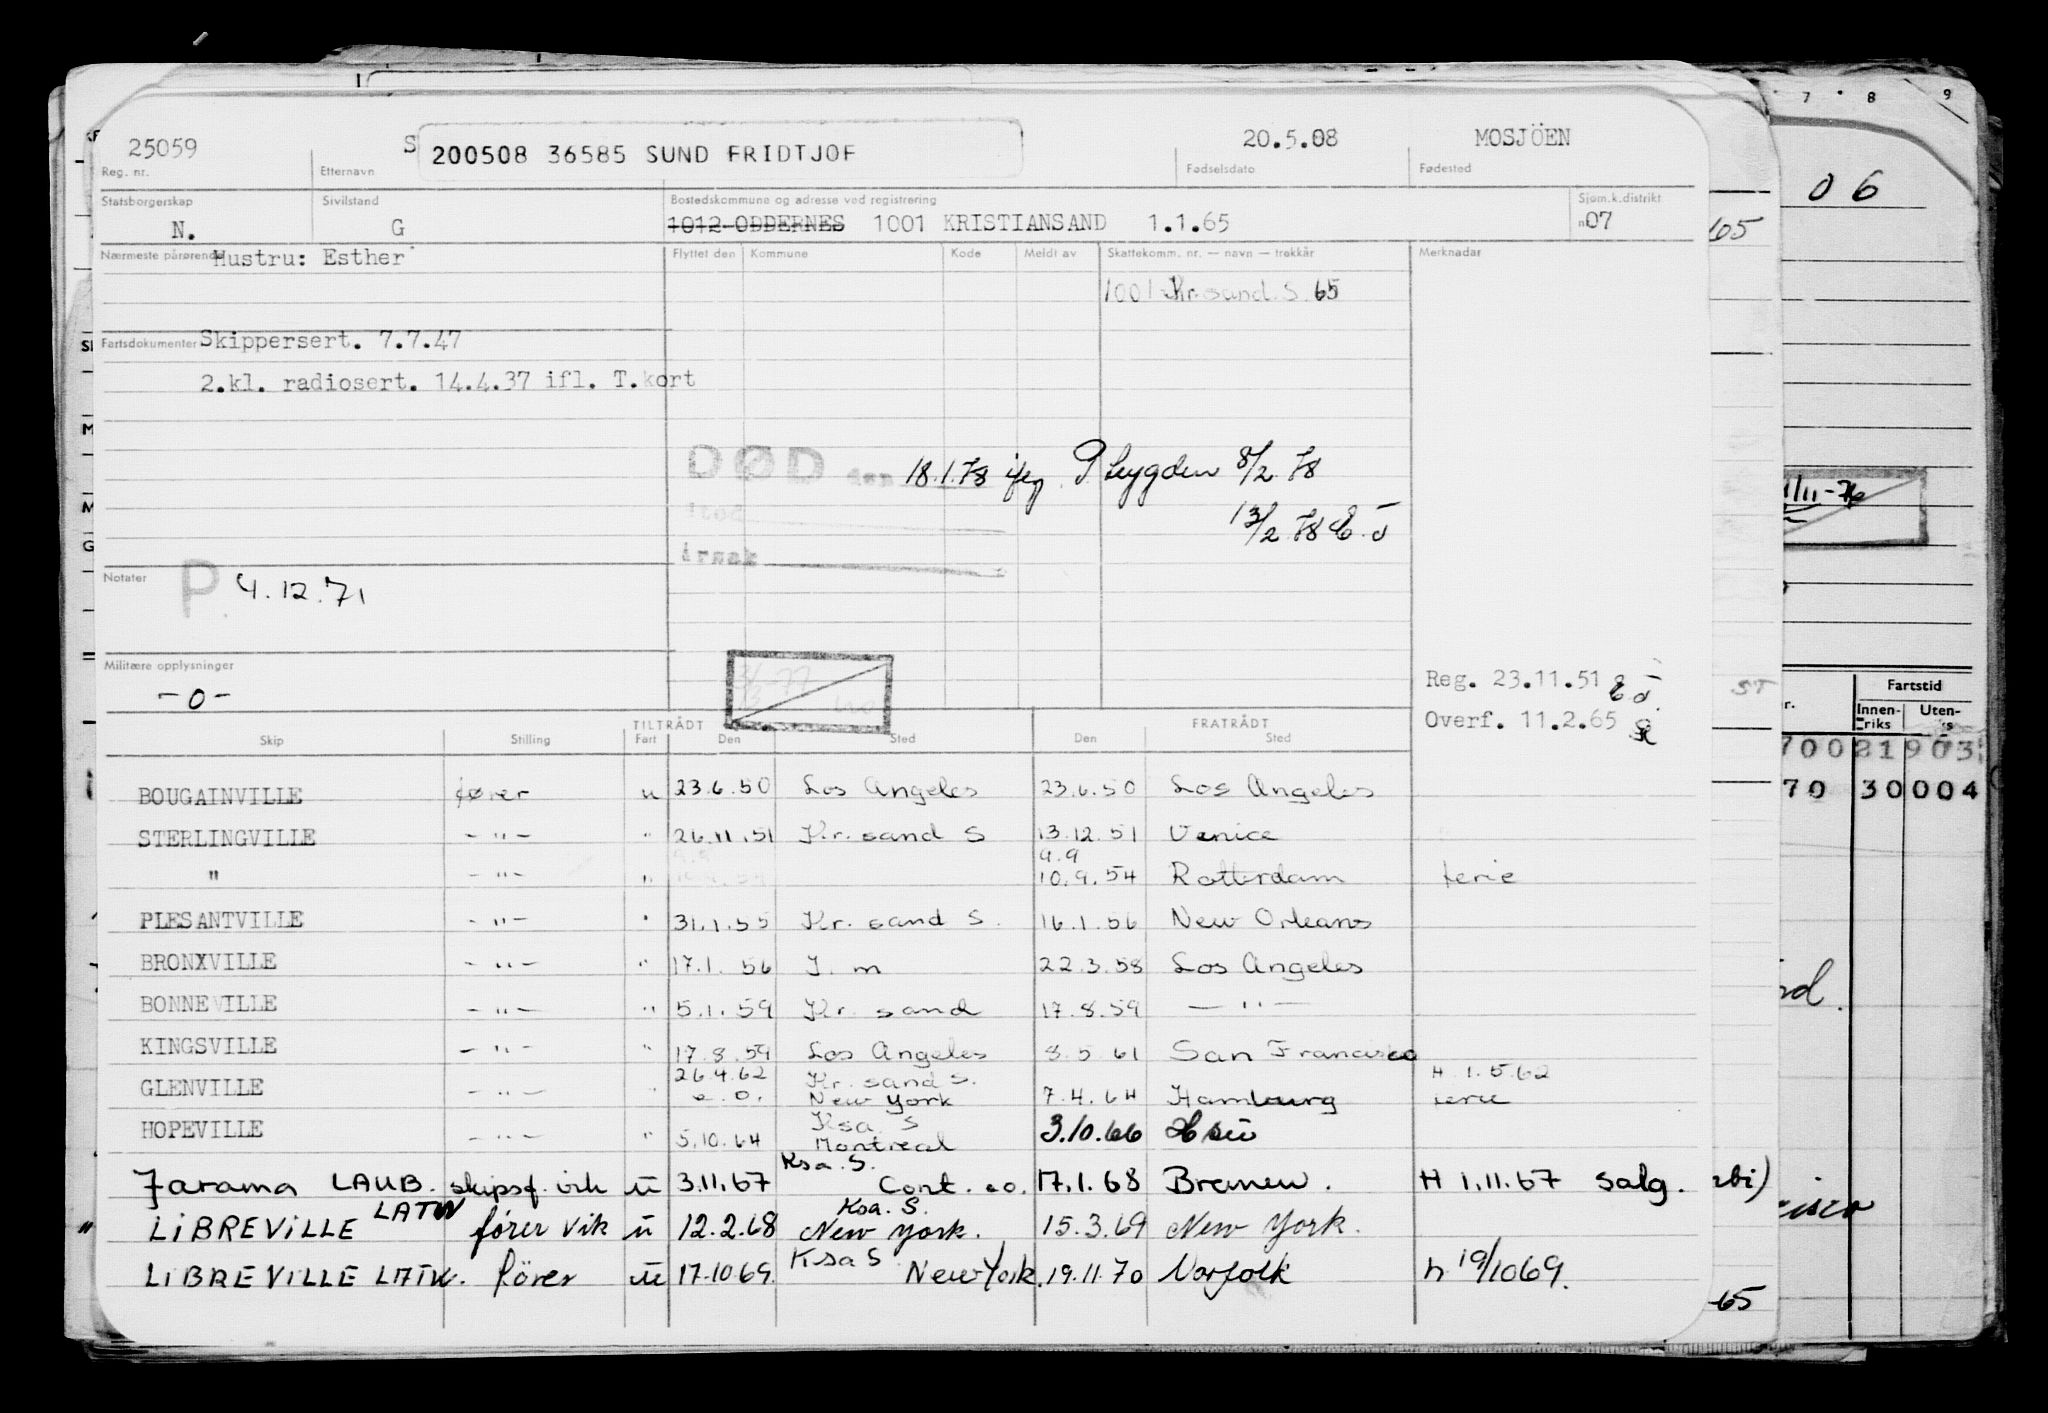 25059 S 200508 36585 SUND FRIDTJOF 20.5.08 MOSJÖEN
Reg. nr. Etternavn Fødselsdato Fødested
Statsborgerskap Sivilstand Bostedskommune og adresse ved registrering Sjøm.k.distrikt
N. G 1012 ODDERNES 1001 KRISTIANSAND 1.1.65 07
Nærmeste pårørende Hustru: Esther Flyttet den Kommune Kode Meldt av Skattekomm. nr. — navn — trekkår Merknader
1001 Kr.sand. S 65
Fartsdokumenter Skippersert. 7.7.47
2.kl. radiosert. 14.4.37 ifl. T.kort
DØD den 18.1.78 8/2 78
sted 13/2 78
årsak
Notater P 4.12.71
Militære opplysninger
-0-
Reg. 23.11.51
Overf. 11.2.65
TILTRÅDT FRATRÅDT
Skip Stilling Fart Den Sted Den Sted
BOUGAINVILLE fører u 23.6.50 Los Angeles 23.6.50 Los Angeles
STERLINGVILLE -"- " 26.11.51 Kr.sand S 13.12.51 Venice
9.9
" -"- " 10.9.54 Rotterdam ferie
PLESANTVILLE -"- " 31.1.55 Kr. sand S. 16.1.56 New Orleans
BRONXVILLE -"- " 17.1.56 22.3.58 Los Angeles
BONNEVILLE -"- " 5.1.59 Kr. sand 17.8.59 -"-
KINGSVILLE -"- " 17.8.59 Los Angeles 8.5.61 San Francisco
26.4.62 Kr. sand S. H 1.5.62
GLENVILLE -"- " New York 7.4.64 Hamburg ferie
Ksa S
HOPEVILLE -"- " 5.10.64 Montreal 3.10.66
Ksa. S.
Jarama LAUB. skipsf. vik u 3.11.67 Cont. 17.1.68 Bremen. H 1.11.67 salg.
Ksa. S.
" LIBREVILLE LATW fører vik u 12.2.68 New York. 15.3.69 New York.
Ksa S
LIBREVILLE LATW. fører u 17.10.69 New York. 19.11.70 Norfolk h 19/10 69.
7 8 9
06
65
1/11-76
ST
Fartstid
Innenriks Uten-
700 21 903
70 30 004
65